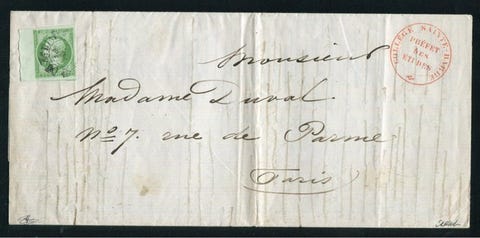 COLLÈGE SAINTE-BARBE
PRÉFET
DES
ETUDES
Monsieur
Madame Duval
No 7. rue de Parme
Paris